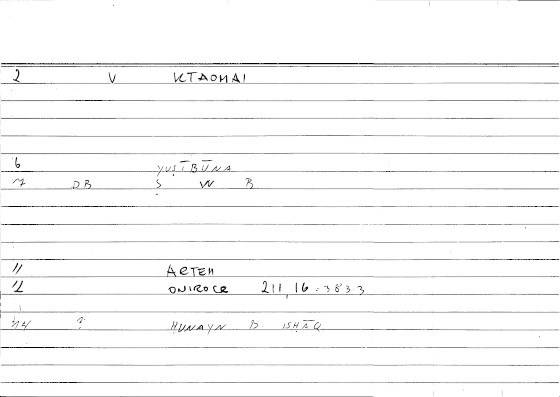 2 V KTAOMAI
6 yuṣībūna
7 DB S W B
11 ARTEM
12 ONIROCR 211,16 : 3833
14 ? HUNAYN B ISHĀQ